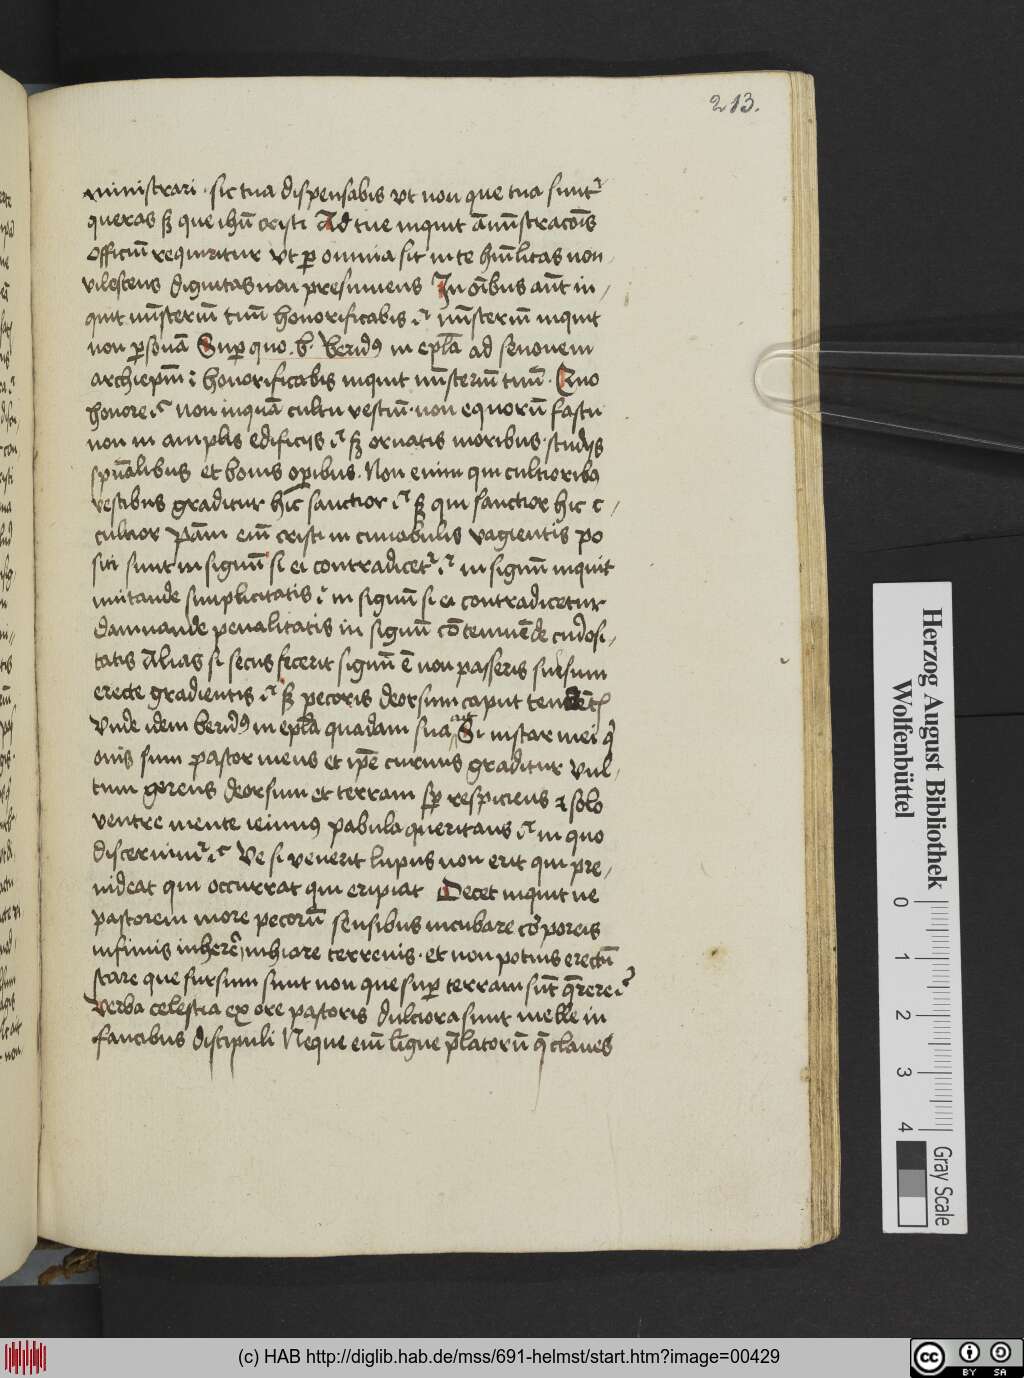 213.
ministrari · sic tua dispensabis vt non que tua sunt
queras sʒ que ihū cristi Ad tue inquit āmīstracōis
officiū requiritur vt ꝑ omnia sit in te hūilitas non
vilescens dignitas non presumens In oībus aūt in-
quit mīsteriū tuū honorificabis .i. mīsteriū inquit
non ꝑsonā Suꝑ quo .b. berndꝰ in epl̄a ad senonem
archiepm̄ .i. honorificabis inquit mīsteriū tuū · Quo
honore .i. non inquā cultu vestiū · non equorū fastu
non in amplis edificijs .i. sʒ ornatis moribus · studijs
spūalibus et bonis oꝑibus . Non enim qui cultioribꝰ
vestibus graditur hic sanctior .i. sʒ qui sanctior hic c-
cultior Pām eīm cristi in cunabulis vagientis po
siti sunt in signū si ei contradicet̄ .i. in signū inquit
imitande simplicitatis .i. in signū si ei contradicetur
damnande penalitatis in signū cōtemnēde cudosi-
tatis Alias si secus fecerit signū ē non passeris sursum
erecte gradientis .i. sʒ pecoris deorsum caput
Vnde idem berndꝰ in epl̄a quadam sua Si instar mei q̄
ouis sum pastor meus et ip̄e curuus graditur vul-
tum gerens deorsum et terram sꝑ respiciens ⁊ solo
ventre mente ieiunꝰ pabula queritans .i. in quo
discernim̄ .i. Ve si venerit lupus non erit qui pre-
uideat qui occurrat qui eripiat Decet inquit ne
pastorem more pecorū sensibus incubare corporeis
infimis inherē inhiare terrenis · et non potius erectū
stare que sursum sunt non que suꝑ terram sūt q̄rere .i.
verba celestia ex ore pastoris dulciora sunt melle in
faucibus discipuli Neque eīm līgue p̄latorū q̄ claues
Herzog August Bibliothek
Wolfenbüttel
0 1 2 3 4
Gray Scale
(c) HAB http://diglib.hab.de/mss/691-helmst/start.htm?image=00429
cc BY SA